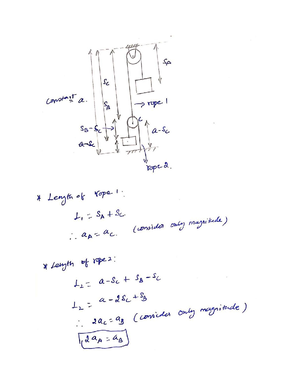 SA
SC
Constant = a.
SB
→ rope 1
SB - SC
C
a-SC
a-SC
rope 2
* Length of rope 1:
L1 = SA + SC
∴ aA = aC. (consider only magnitude)
* Length of rope 2:
L2 = a - SC + SB - SC
L2 = a - 2SC + SB
∴ 2aC = aB (consider only magnitude)
∴ 2aA = aB